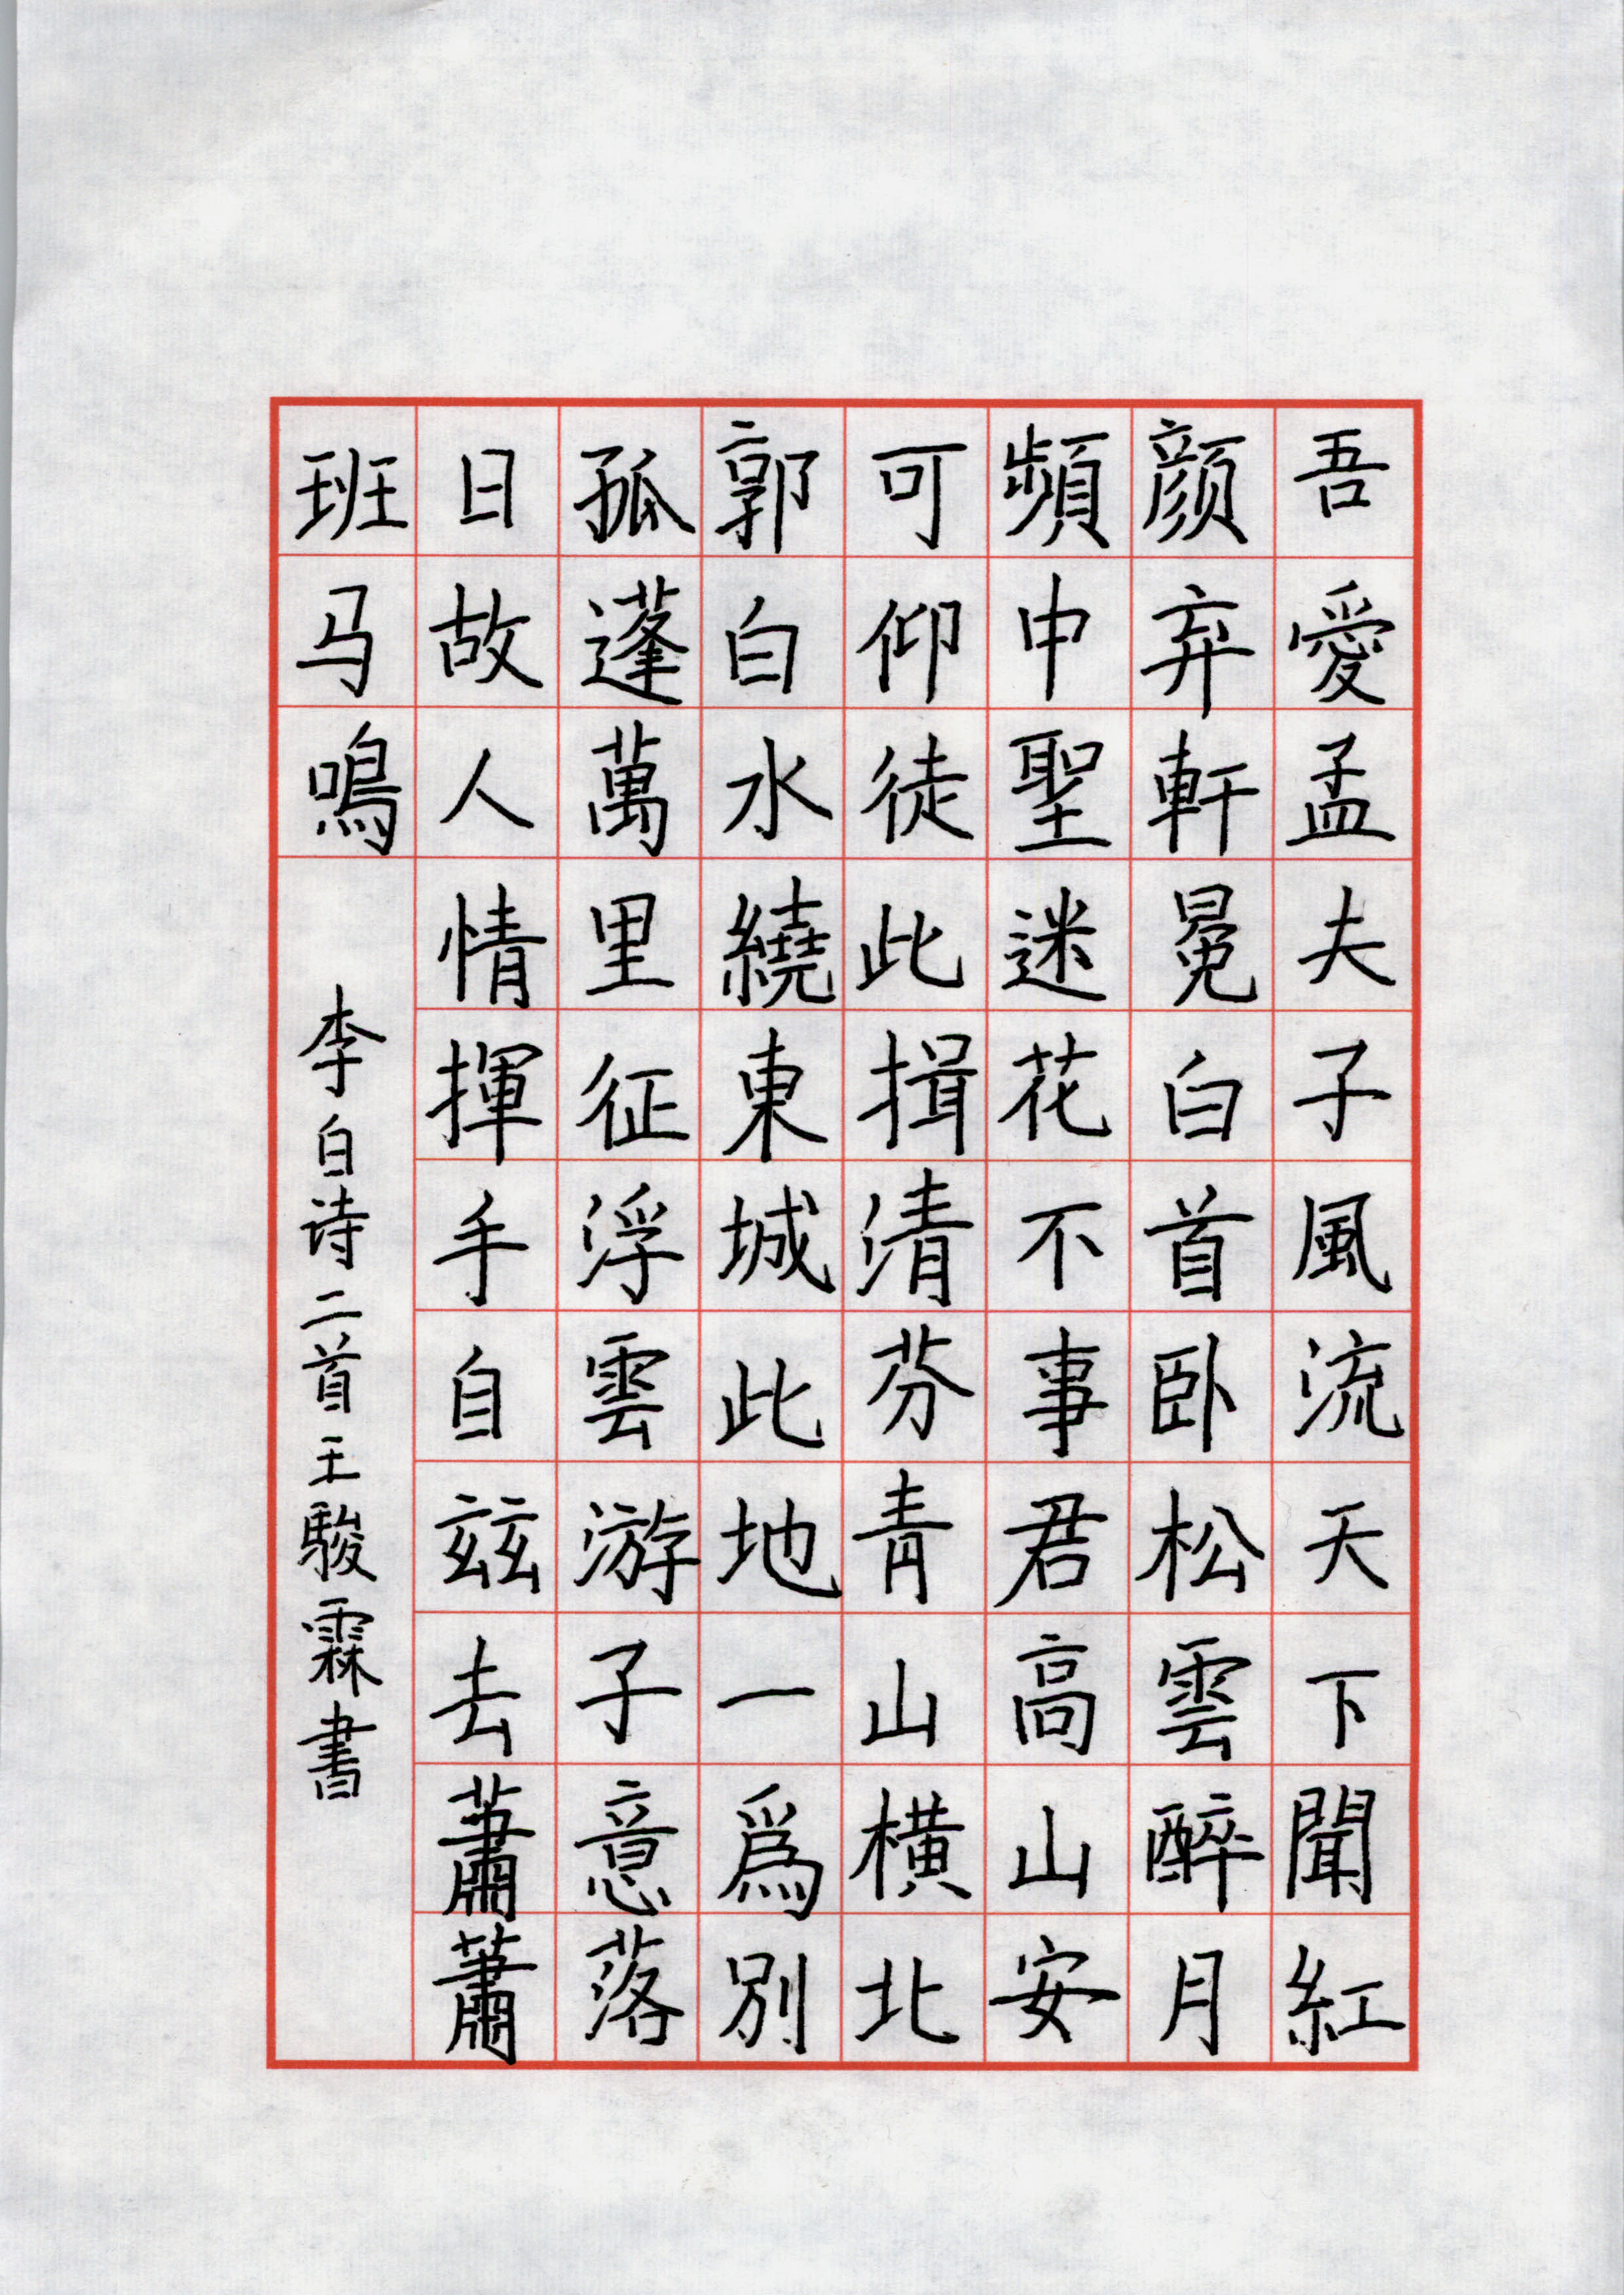 吾愛孟夫子風流天下聞紅
颜弃軒冕白首卧松雲醉月
頻申聖迷花不事君高山安
可仰徒此揖清芬青山横北
郭白水繞東城此地一爲別
孤蓬萬里征浮雲游子意落
日故人情揮手自玆去蕭蕭
班马鳴
李白诗二首王駿霖書